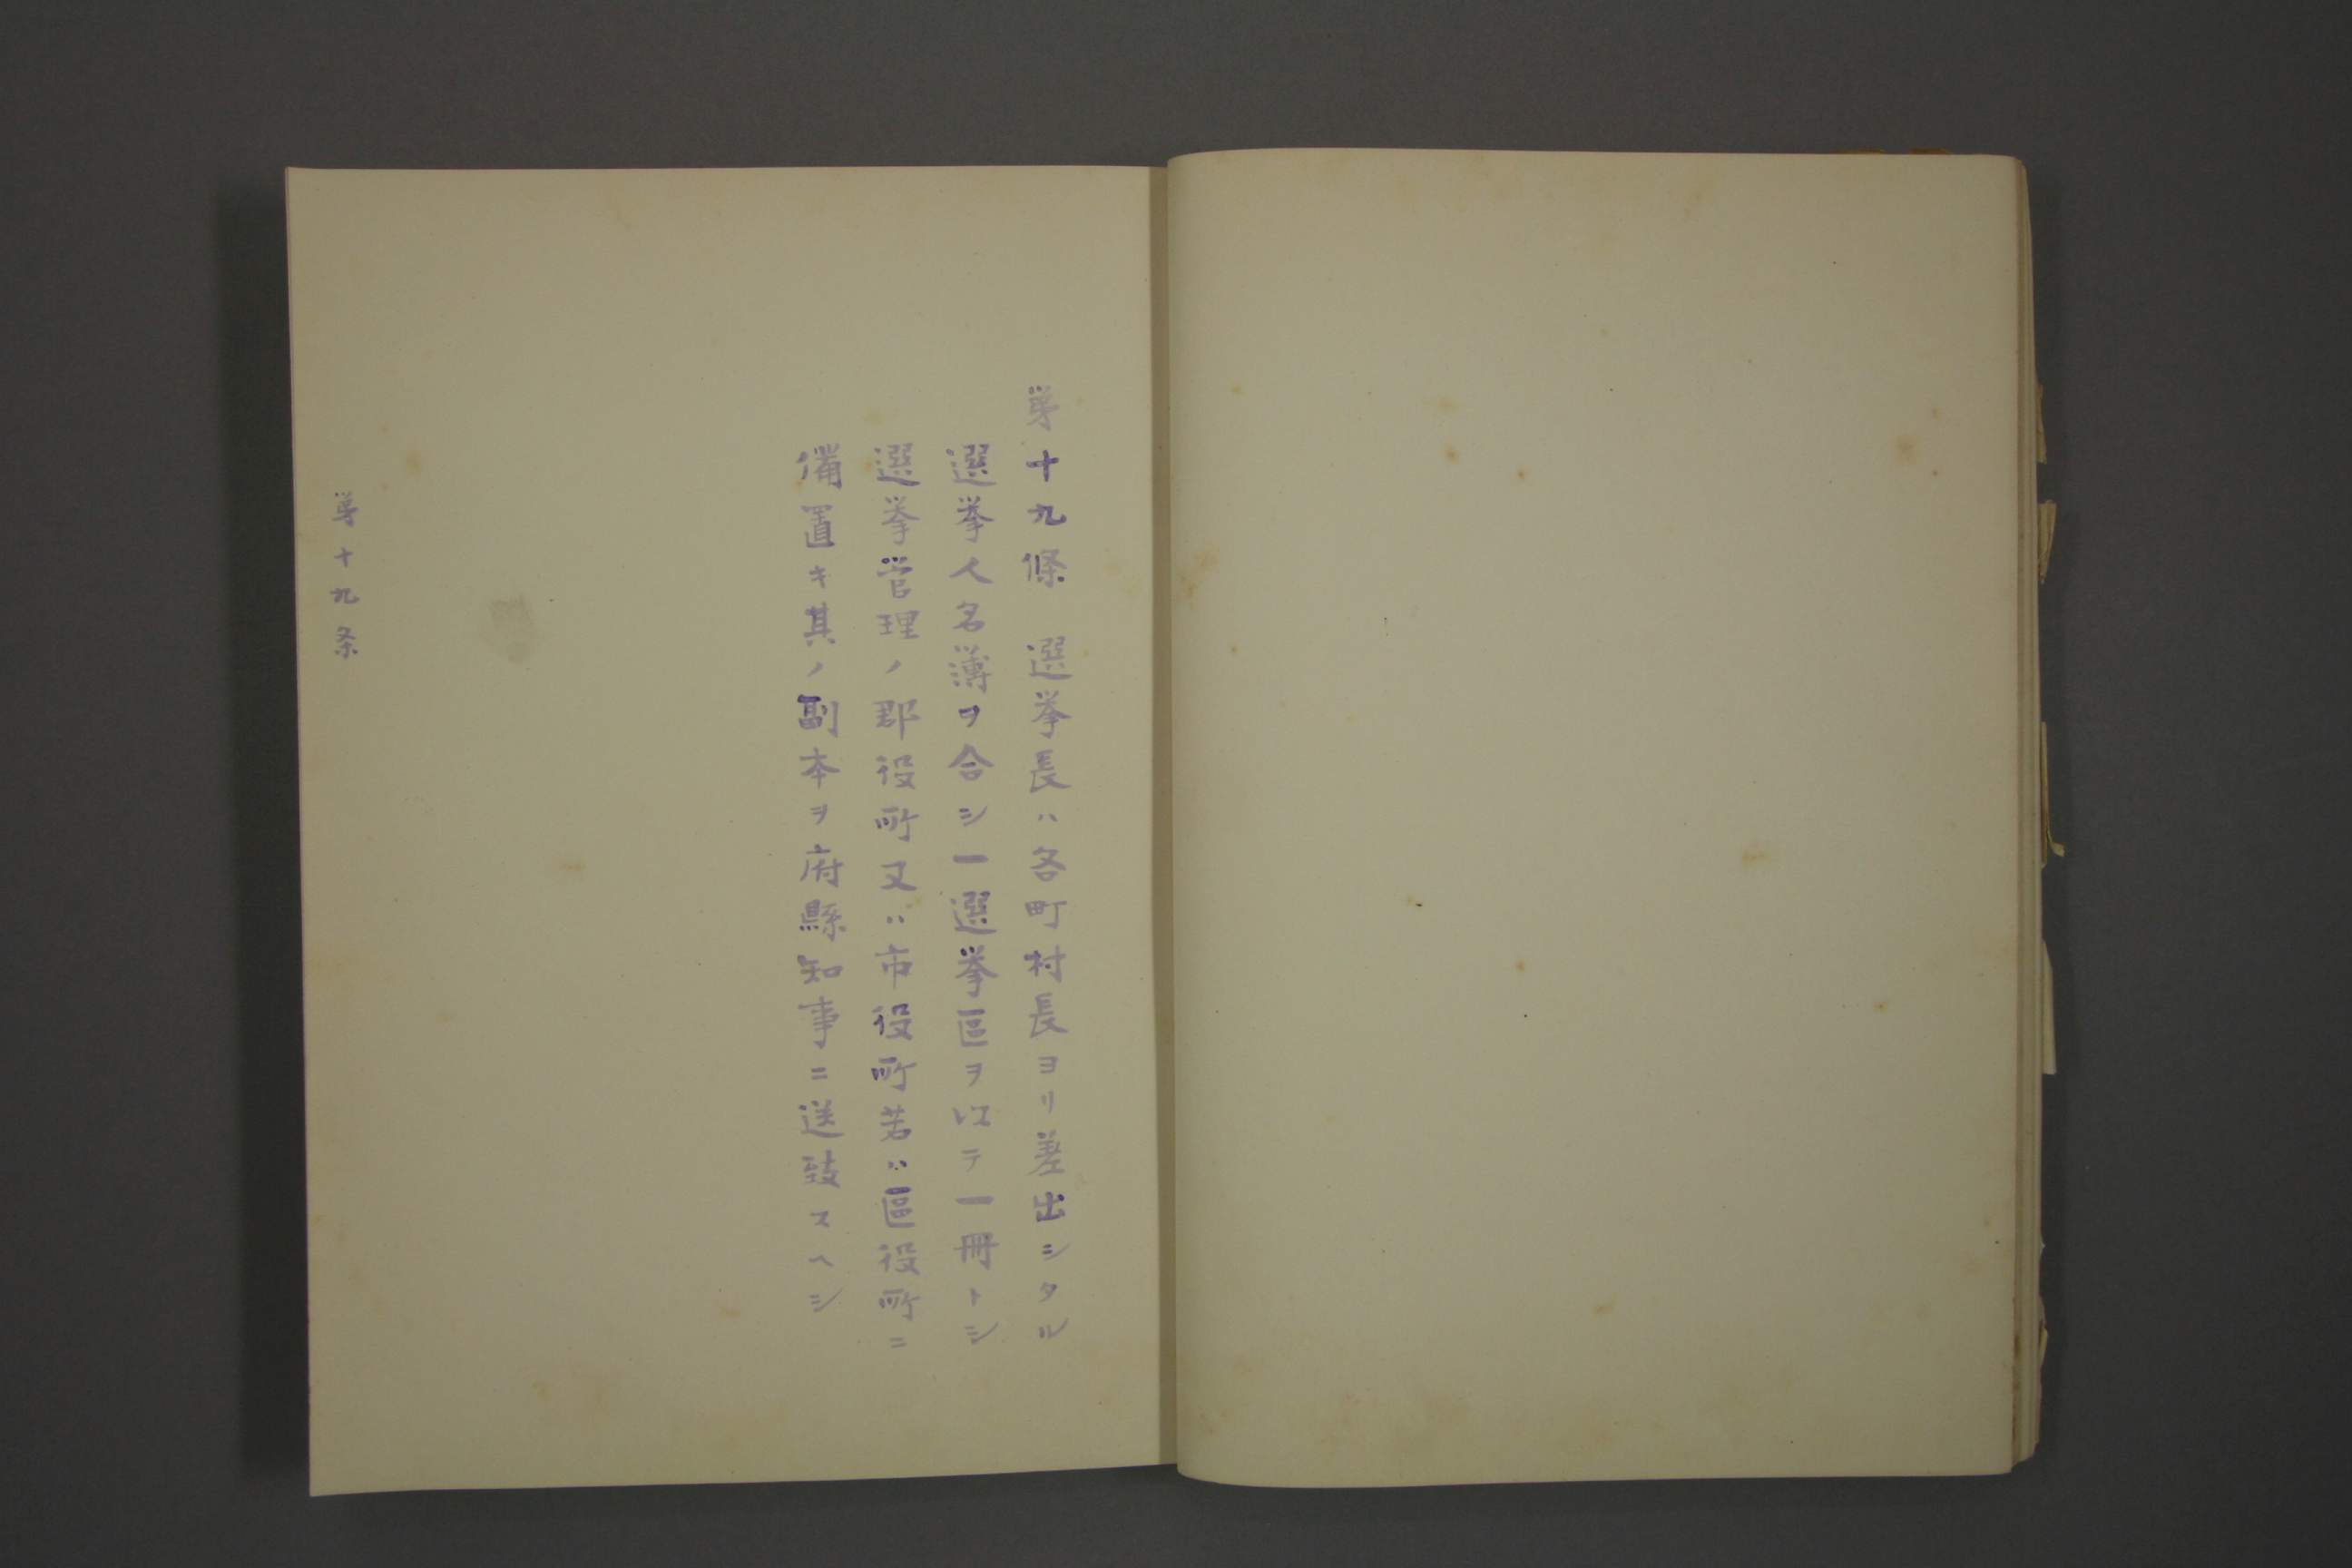 第十九條　選挙長ハ各町村長ヨリ差出シタル
選挙人名簿ヲ合シ一選挙區ヲ以テ一冊トシ
選挙管理ノ郡役所又ハ市役所若ハ區役所ニ
備置キ其ノ副本ヲ府縣知事ニ送致スヘシ
第十九条